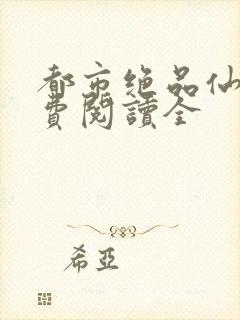 都市绝品仙
費閱讀全
希亞